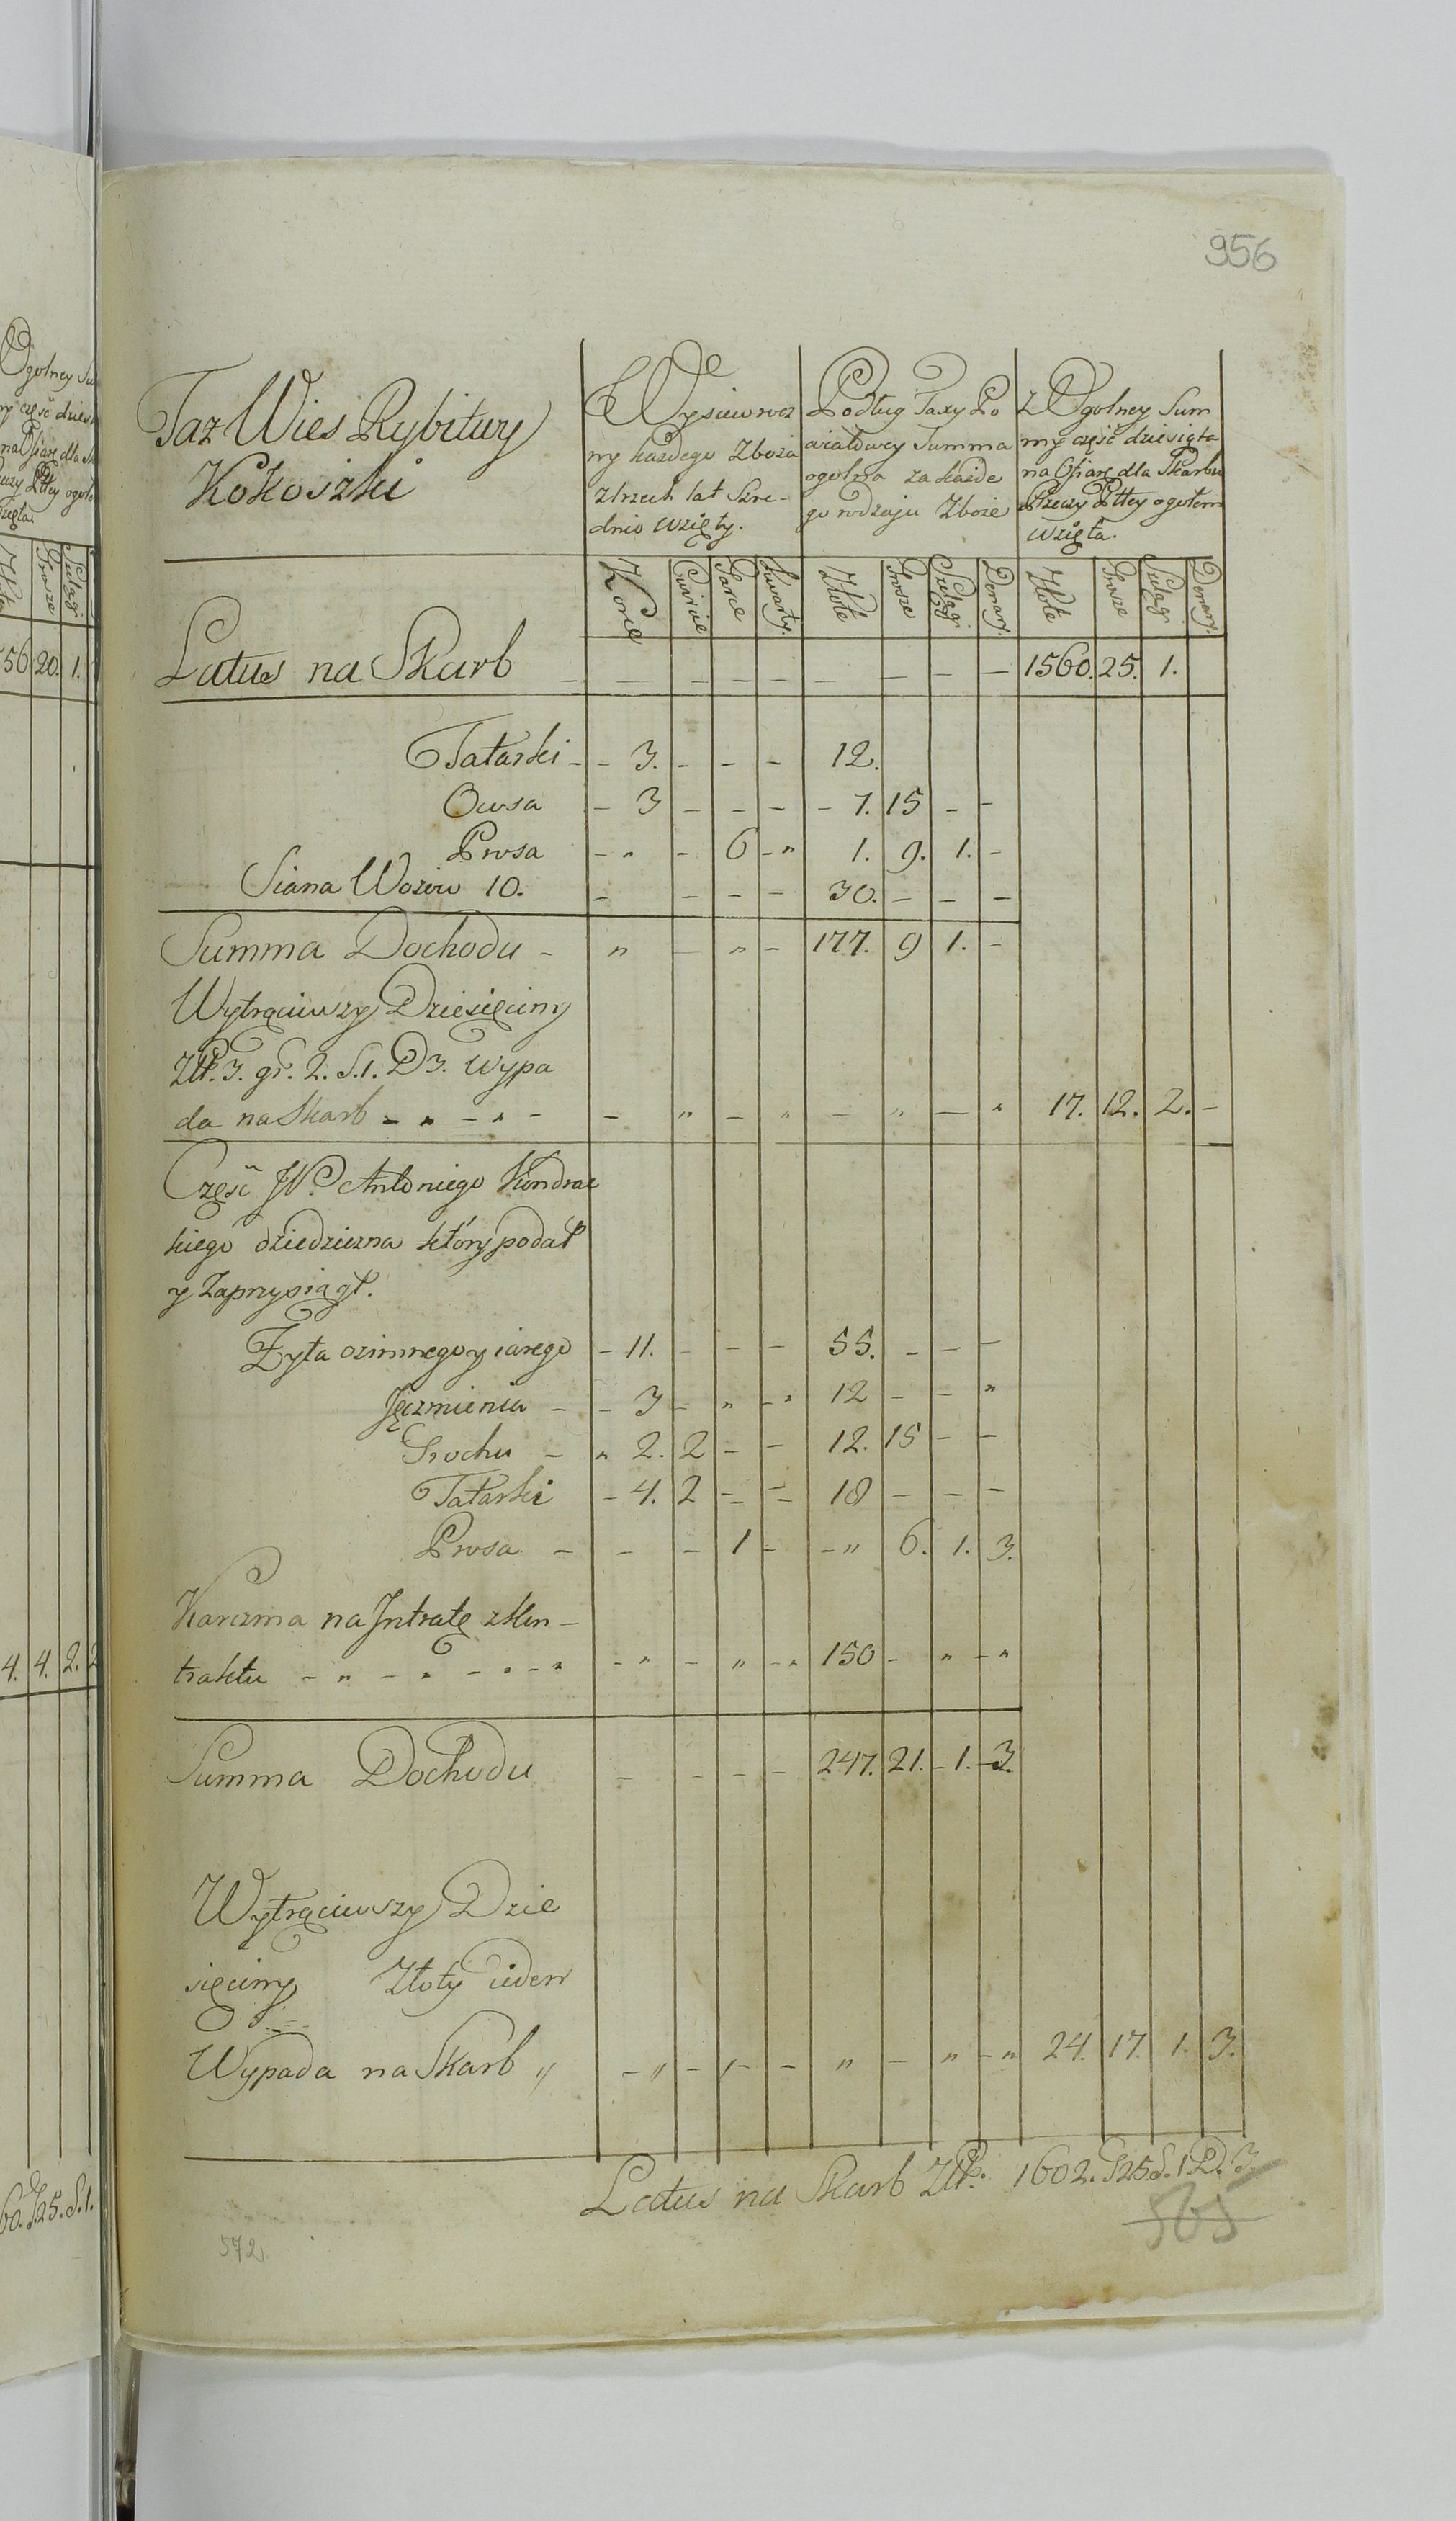 956
Taz Wies Rybitwy
Kokoszki
Wysiew rocz
ny każdego Zboża
z trzech lat Szre-
dnio wzięty.
Podług Taxy Po
wiatowey Summa
ogolna za każde
go rodzaju Zboże
z Ogolney Sum
my część dziesiąta
na Ofiarę dla Skarbu
Rzeczy Pltey ogołem
wzięta.
Korce Cwircie Garce Kwarty. Złote Grosze Szelągi Denary. Złote Grosze Szelągi Denary.
Latus na Skarb - - - - - - - - - 1560. 25. 1.
Tatarki - - 3. - - - 12.
Owsa - 3 - - - - 7. 15 - -
Prosa - " - 6 - " 1. 9. 1. -
Siana Wozow 10. - - - - 30. - - -
Summa Dochodu - " - " - 177. 9 1. -
Wytrąciwszy Dziesięciny
Złł. 3. gr. 2. S. 1. D 3. wypa
da na Skarb - " - " - - " - " - " - " 17. 12. 2. -
Część JP. Antoniego Kondrac
kiego dziedziczna który podał
y zaprzysiągł.
Zyta ozimnego y iarego - 11. - - - 55. - - -
Jęczmienia - - 3 - " - " 12 - - "
Grochu - " 2. 2 - - 12. 15 - -
Tatarki - 4. 2 - - 18 - - -
Prosa - - - 1 - - " 6. 1. 3.
Karczma na Jntratę z kon-
traktu - " - " - " - " - " - " - " 150 - " - "
Summa Dochodu - - - - 247. 21. - 1. - 3.
Wytrąciwszy Dzie
sięciny Złoty ieden
Wypada na Skarb " - " - " - - " - " - " 24. 17. 1. 3.
Latus na Skarb Złł. 1602. G 25. S. 1 D. 3
565
572